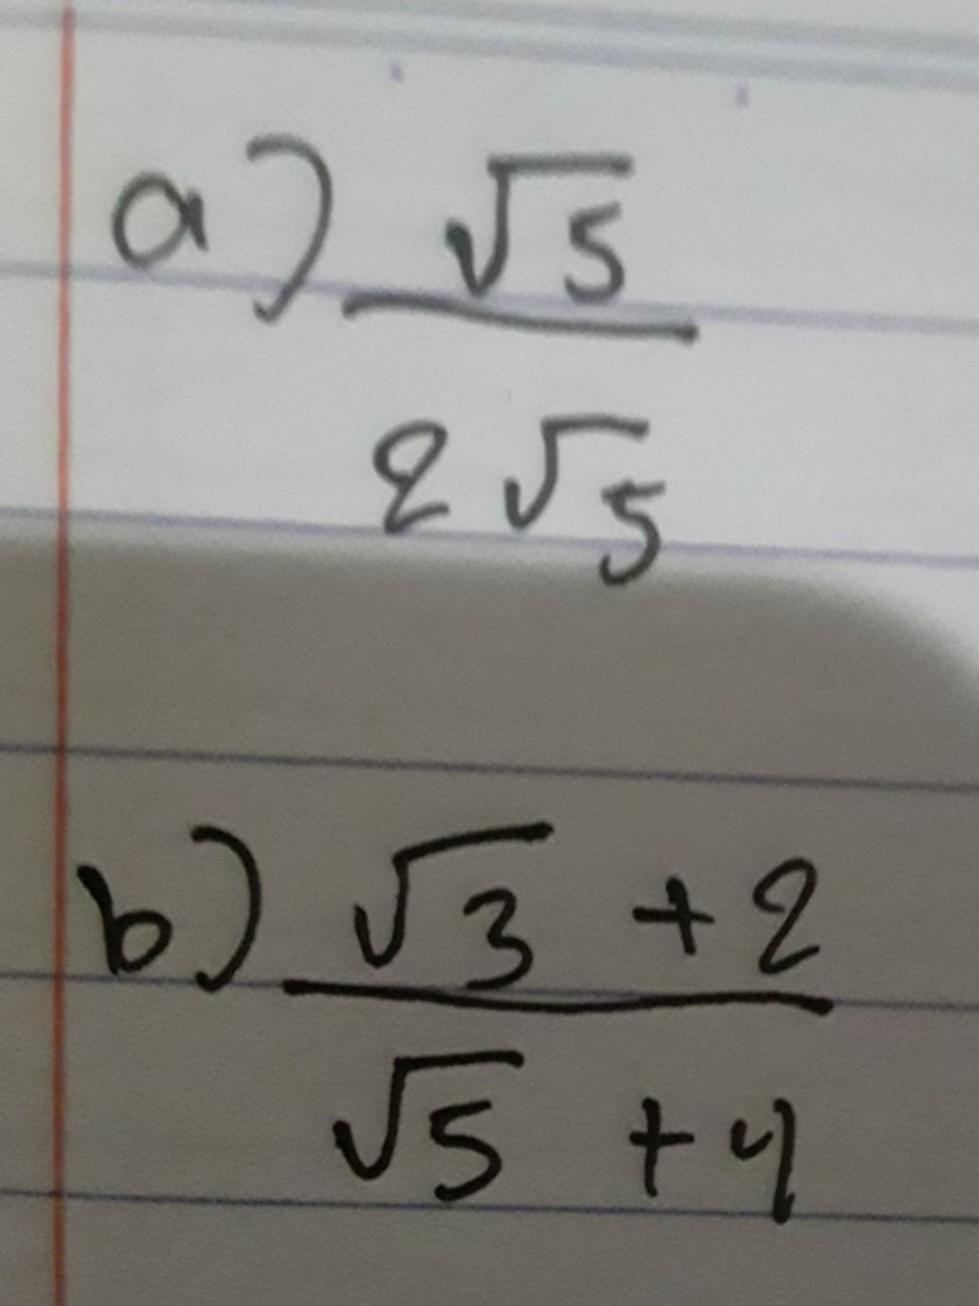 a) √5
2√5
b) √3 + 2
√5 + 4